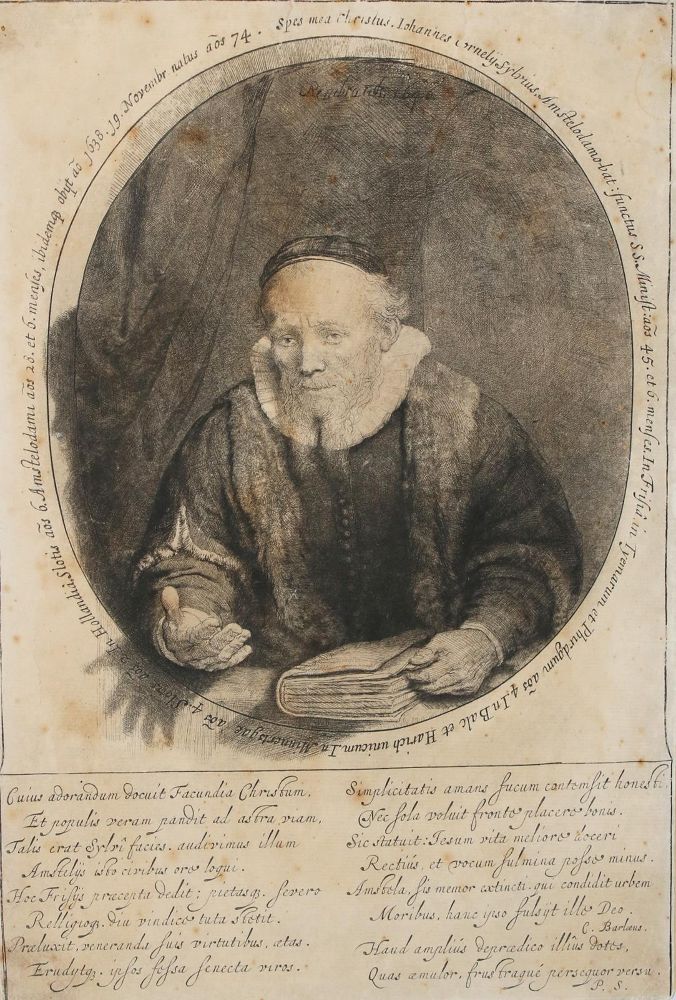 Spes mea Christus. Iohannes Cornelij Sylvius, Amstelodamo-bat: functus S S. Minist: aõs 45. et 6. menses. In Frisiâ in Tyemarum et Phirdgum aõs 4. In Balc et Harich unicum. In Minnertsgae aõs 4. Slotis aõs 2. In Hollandiâ Slotis aõs 6. Amstelodami aõs 28. et 6. menses, ibidemqꝫ obijt aõ 1638. 19. Novembr natus aõs 74.
Rembrandt
Cuius adorandum docuit Facundia Christum,
Et populis veram pandit ad astra viam,
Talis erat Sylvî facies. audivimus illum
Amstelijs isto civibus ore loqui.
Hoc Frisijs præcepta dedit; pietasqꝫ severo
Relligioqꝫ diu vindice tuta stetit.
Præluxit, veneranda suis virtutibus, ætas.
Erudytqꝫ ipsos fessa senecta viros.
Simplicitatis amans fucum contemsit honesti,
Nec sola voluit fronte placere bonis.
Sic statuit: Iesum vita meliore doceri
Rectiùs, et vocum fulmina posse minus.
Amstela, sis memor extincti qui condidit urbem
Moribus, hanc ipso fulsijt ille Deo.
C. Barlæus.
Haud ampliùs deprædico illius dotes,
Quas æmulor, frustraque persequor versu.
P. S.